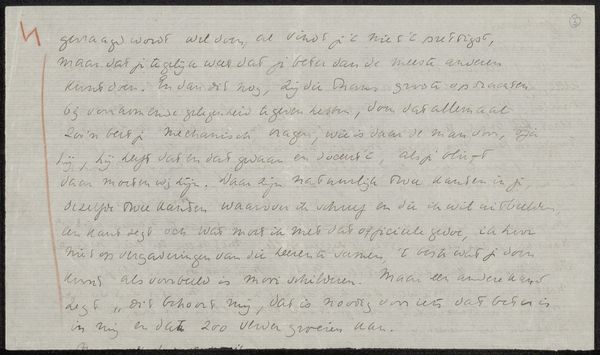 gevraagd wordt wel doen, al vindt je 't niet 't prettigst,
maar dat je tegelijk weet dat je beter dan de meeste anderen
kunt doen. En dan dit nog, zij die thans groote opdrachten
bij voorkomende gelegenheid te geven hebben, doen dat allemaal
zoo'n beetje mechanisch vragen, wie is daar de man voor,
hij, hij heeft dat en dat gedaan en doceert, als je blieft
daar moeten wij zijn. Daar zijn natuurlijk twee kanten in je,
dezelfde twee kanten waarover ik schreef en die ik wil uitbeelden,
een kant zegt och wat moet ik met dat officieele gedoe, ik hoor
niet op vergaderingen van die heeren te samen, 't beste wat je doen
kunt als voorbeeld is mooi schilderen. Maar een andere kant
zegt "dit behoort mij, dat is noodig voor iets dat beter is
in mij en dat zoo verder groeien kan.